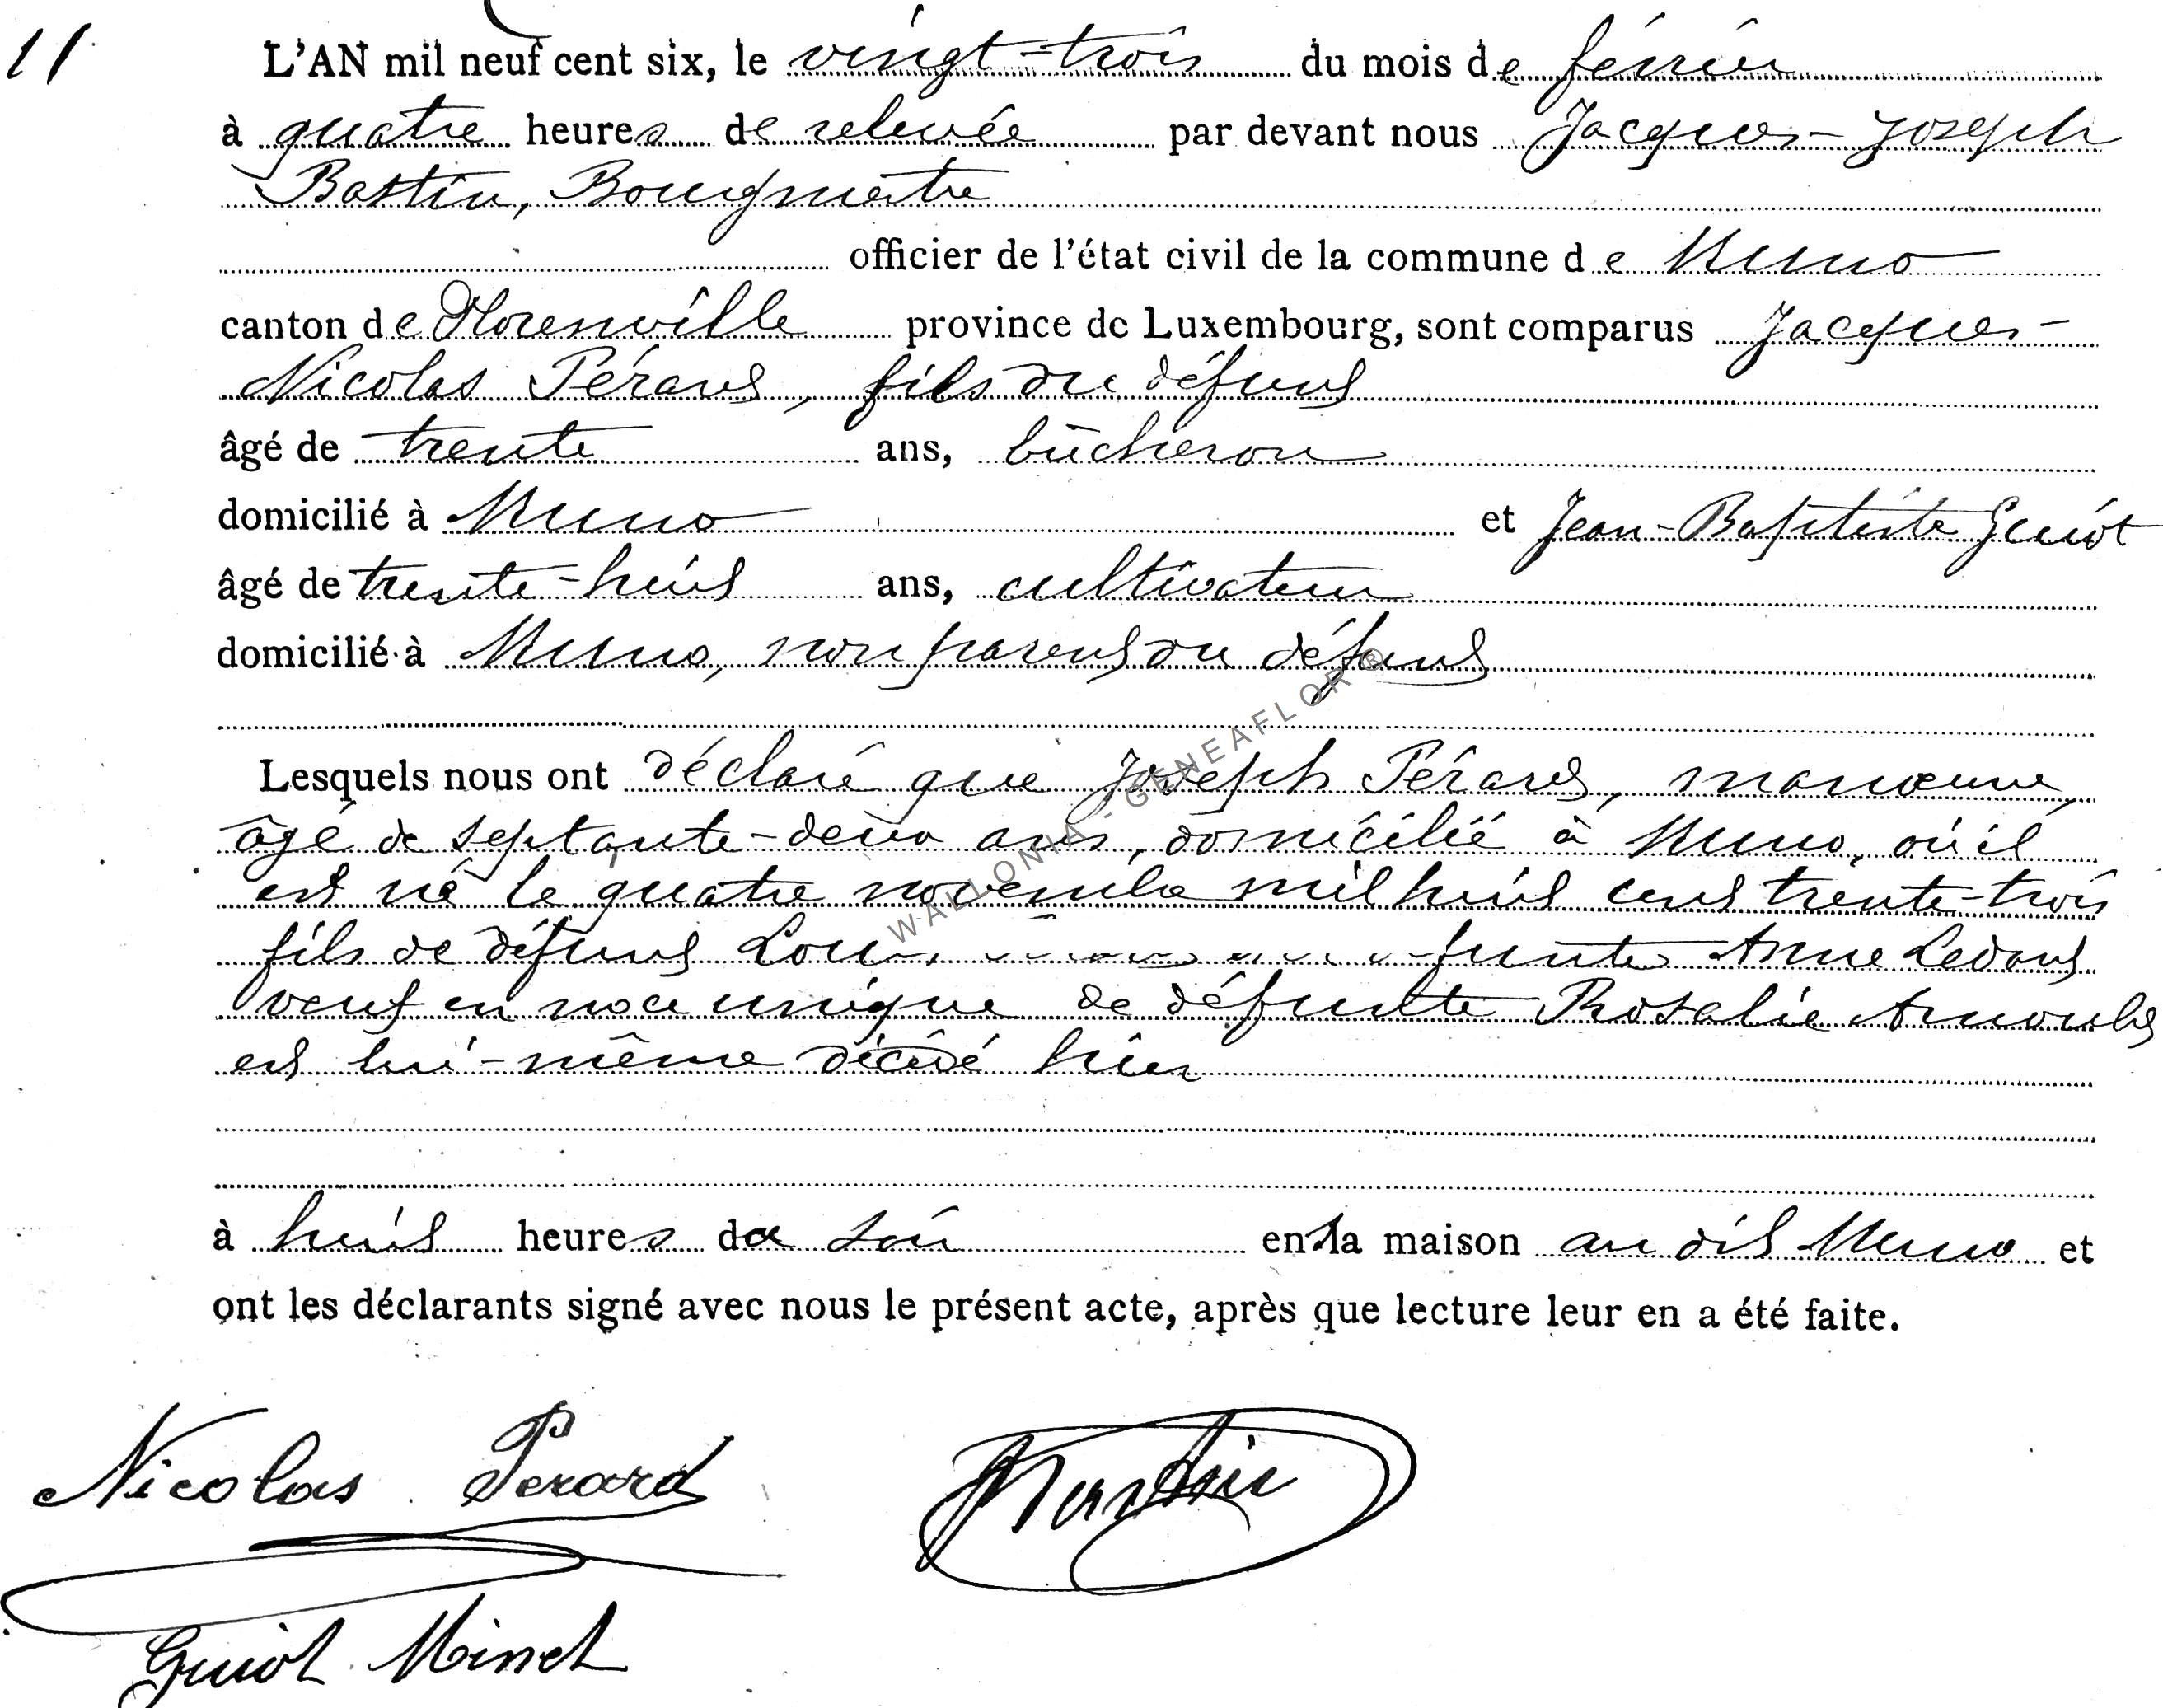 11
L'AN mil neuf cent six, le vingt-trois du mois de février
à quatre heures de relevée par devant nous Jacques-Joseph
Bastin, Bourgmestre
officier de l'état civil de la commune de Muno
canton de Florenville province de Luxembourg, sont comparus Jacques-
Nicolas Pérard, fils du défunt
âgé de trente ans, bûcheron
domicilié à Muno et Jean-Baptiste Guiot
âgé de trente-huit ans, cultivateur
domicilié à Muno, non parent du défunt
Lesquels nous ont déclaré que Joseph Pérard, manœuvre,
âgé de septante-deux ans, domicilié à Muno, où il
est né le quatre novembre mil huit cent trente-trois
fils de défunt Anne Ledant
veuf en noce unique de défunte Rosalie Arnould
est lui-même décédé hier
à huit heures du soir en la maison au dit Muno et
ont les déclarants signé avec nous le présent acte, après que lecture leur en a été faite.
Nicolas Perard
Guiot Minet
WALLONIA - GENEAFLOR ®